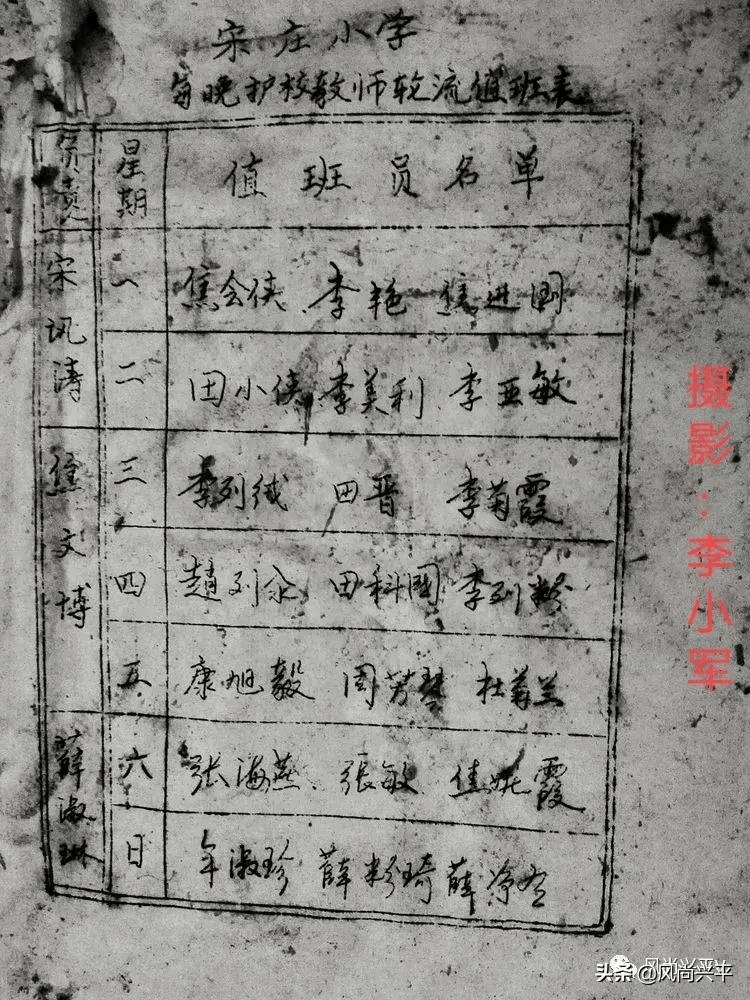 宋庄小学
每晚护校教师轮流值班表
负责 星期 值班员名单
宋讽涛 一 焦会侠 李艳 焦进国
二 田小侠 李美利 李亚敏
焦文博 三 李列绒 田晋 李菊霞
四 赵列 田科国 李列粉
五 康旭毅 周芳琴 杜菊兰
薛淑琳 六 张海燕 張敏 焦妮霞
日 年淑珍 薛粉琦 薛净
摄影：李小军
风尚兴平
头条@风尚兴平